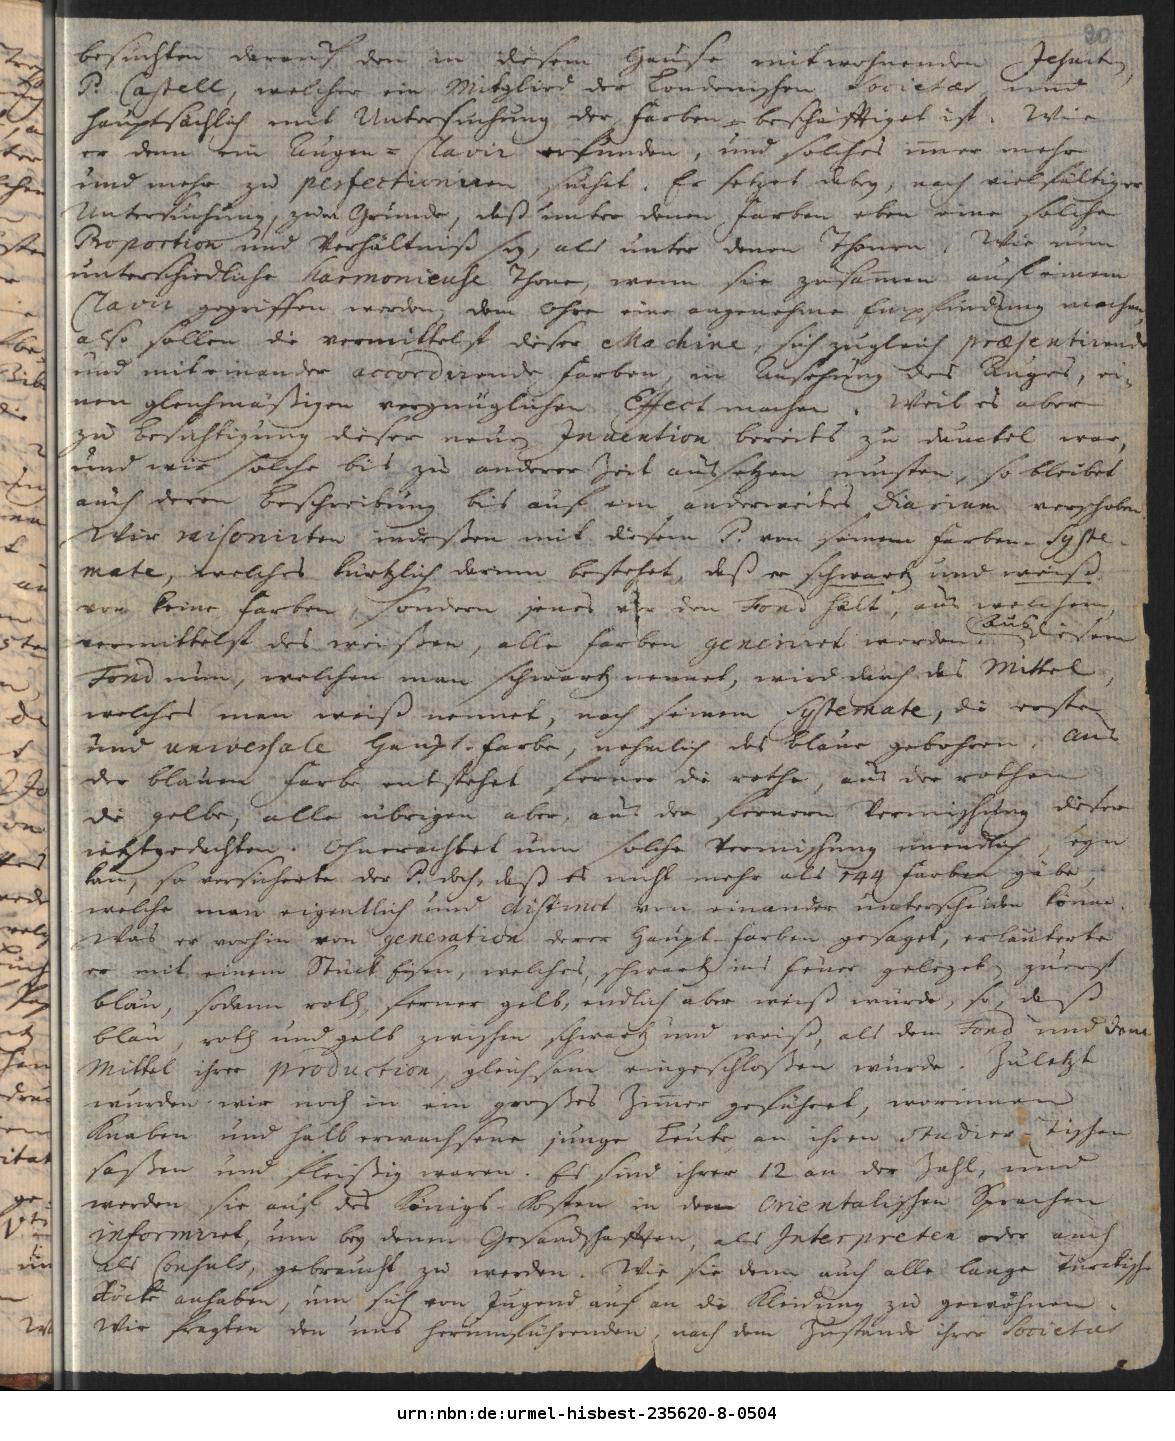 30
besuchten darauf den in diesem Hause mitwohnenden Jesuiten,
P. Castell, welcher ein Mitglied der Londenischen Societaet und
hauptsächlich mit Untersuchung der Farben beschäfftiget ist. Wie
er denn ein Augen-Clavir erfunden, und solches immer mehr
und mehr zu perfectioniren suchet. Er setzet dabey, nach vielfältiger
Untersuchung, zum Grunde, daß unter denen Farben eben eine solche
Proportion und Verhältniß sey, als unter denen Thonen. Wie nun
unterschiedliche harmonieuse Thone, wenn sie zusammen auf einem
Clavir gegriffen werden, dem Ohre eine angenehme Empfindung machen,
also sollen die vermittelst dieser Machine, sich zugleich præsentirende
und mit einander accordirende Farben, in Ansehung des Auges, ei-
nen gleichmäßigen vergnüglichen Effect machen. Weil es aber
zu Besichtigung dieser neuen Invention bereits zu dunckel war,
und wir solche bis zu anderer Zeit aussetzen musten, so bleibet
auch deren Beschreibung bis auf ein anderweites Diarium verschoben.
Wir raisonirten indeßen mit diesem P. von seinem Farben-Syste-
mate, welches kürtzlich darinn bestehet, daß er schwartz und weiß
vor keine Farben, sondern jenes vor den Fond hält, aus welchem,
vermittelst des weißen, alle Farben generiret werden. Aus diesem
Fond nun, welchen man schwartz nennet, wird durch das Mittel,
welches man weiß nennet, nach seinem Systemate, die erste
und universale Haupt-Farbe, nehmlich das blaue gebohren. Aus
der blauen Farbe entstehet ferner die rothe, aus der rothen
die gelbe, alle übrigen aber, aus der fernern Vermischung dieser
ietztgedachten. Ohnerachtet nun solche Vermischung unendlich seyn
kan, so versicherte der P. doch, daß es nicht mehr als 144 Farben gäbe,
welche man eigentlich und distinct von einander unterscheiden könne.
Was er vorhin von generation derer Haupt-Farben gesaget, erläuterte
er mit einem Stück Eisen, welches, schwartz ins Feuer geleget, zuerst
blau, sodann roth, ferner gelb, endlich aber weiß würde, so, daß
blau, roth und gelb zwischen schwartz und weiß, als dem Fond und dem
Mittel ihrer production, gleichsam eingeschloßen würde. Zuletzt
wurden wir noch in ein großes Zimmer geführet, worinnen
Knaben und halb erwachsene junge Leute, an ihren Studier-Tischen
saßen und fleißig waren. Es sind ihrer 12 an der Zahl, und
werden sie auf des Königs Kosten in den Orientalischen Sprachen
informiret, um bey denen Gesandschafften, als Interpreten oder auch
als Consuls, gebraucht zu werden. Wie sie denn auch alle lange Türckische
Röcke anhaben, um sich von Jugend auf an die Kleidung zu gewöhnen.
Wir fragten den uns herumführenden, nach dem Zustande ihrer Societaet
urn:nbn:de:urmel-hisbest-235620-8-0504